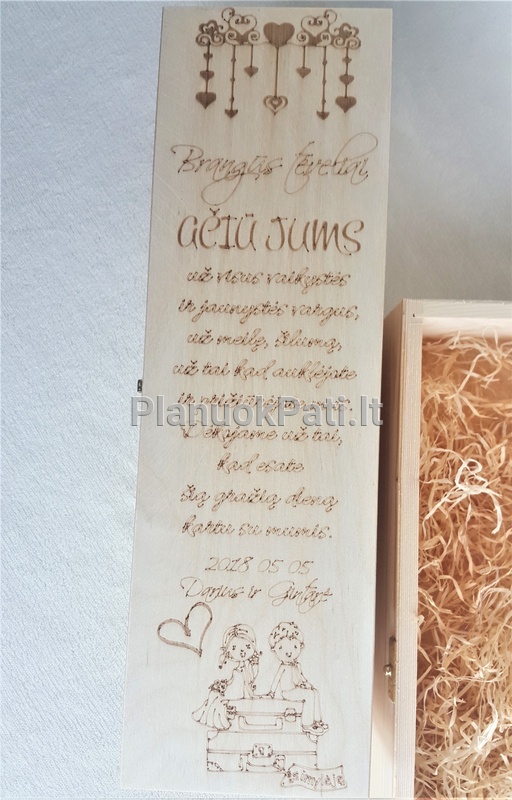 Brangūs tėveliai,
AČIŪ JUMS
už visus vaikystės
ir jaunystės vargus,
už meilę, šilumą,
už tai kad auklėjote
ir
PlanuokPati.lt
Dėkojame už tai,
kad esate
šią gražią dieną
kartu su mumis.
2018 05 05
Darius ir Gintarė